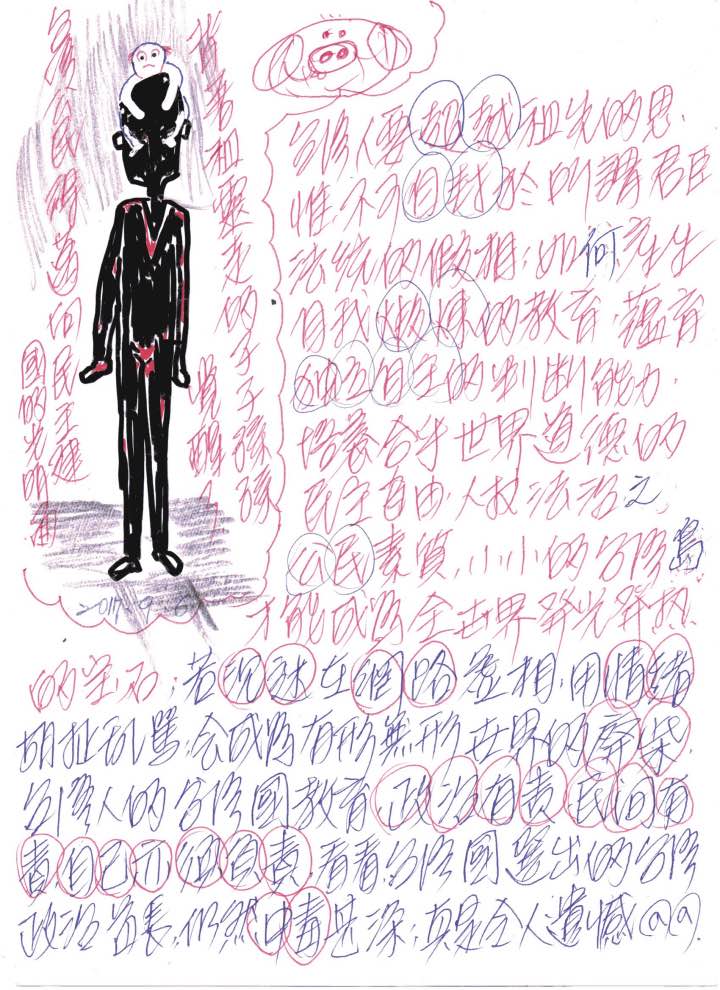 背著祖靈走的子子孫孫
覺醒了
台灣公民們邁向民主建
國的光明面
2017.9.6
台灣人要超越祖先的思
惟.不可自封於所謂君臣
法統的假相;如何產生
自我教育.蘊育
獨立自主的判斷能力.
培養合乎世界道德的
民主自由.人权法治之
公民素質.小小的台灣島
才能成為全世界發光發热
的宝石;若沉迷在網路虛相.用情緒
胡扯乱罵.会成為有形無形世界的廢柴.
台灣人的台灣國教育.政治有責.民间有
責.自己亦須負責.看看台灣國選出的台灣
政治首長.仍然中毒甚深.真是令人遺憾@@.